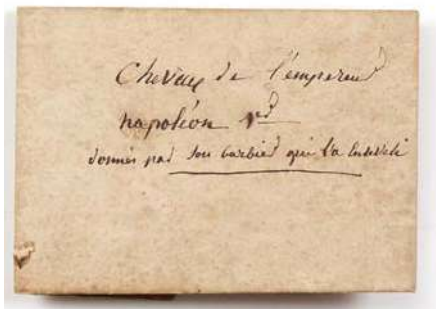 Cheveux de l'empereur
napoléon 1er
donnés par son barbier qui l'a enseveli